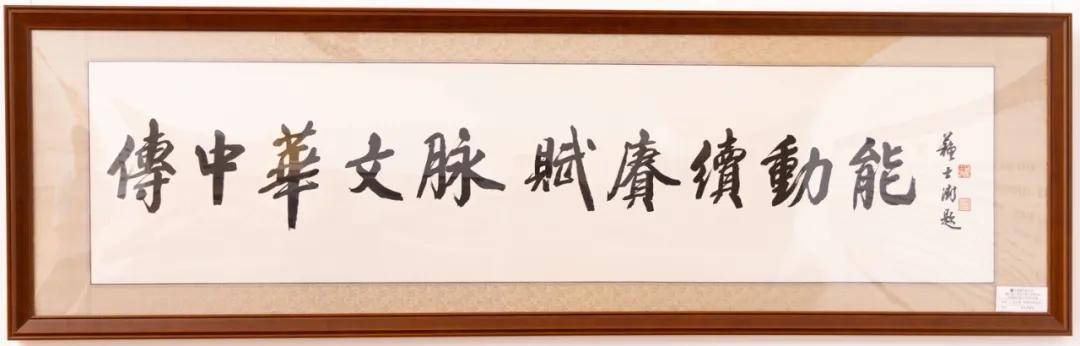 傳中華文脉 賦賡續動能
蘇士澍題